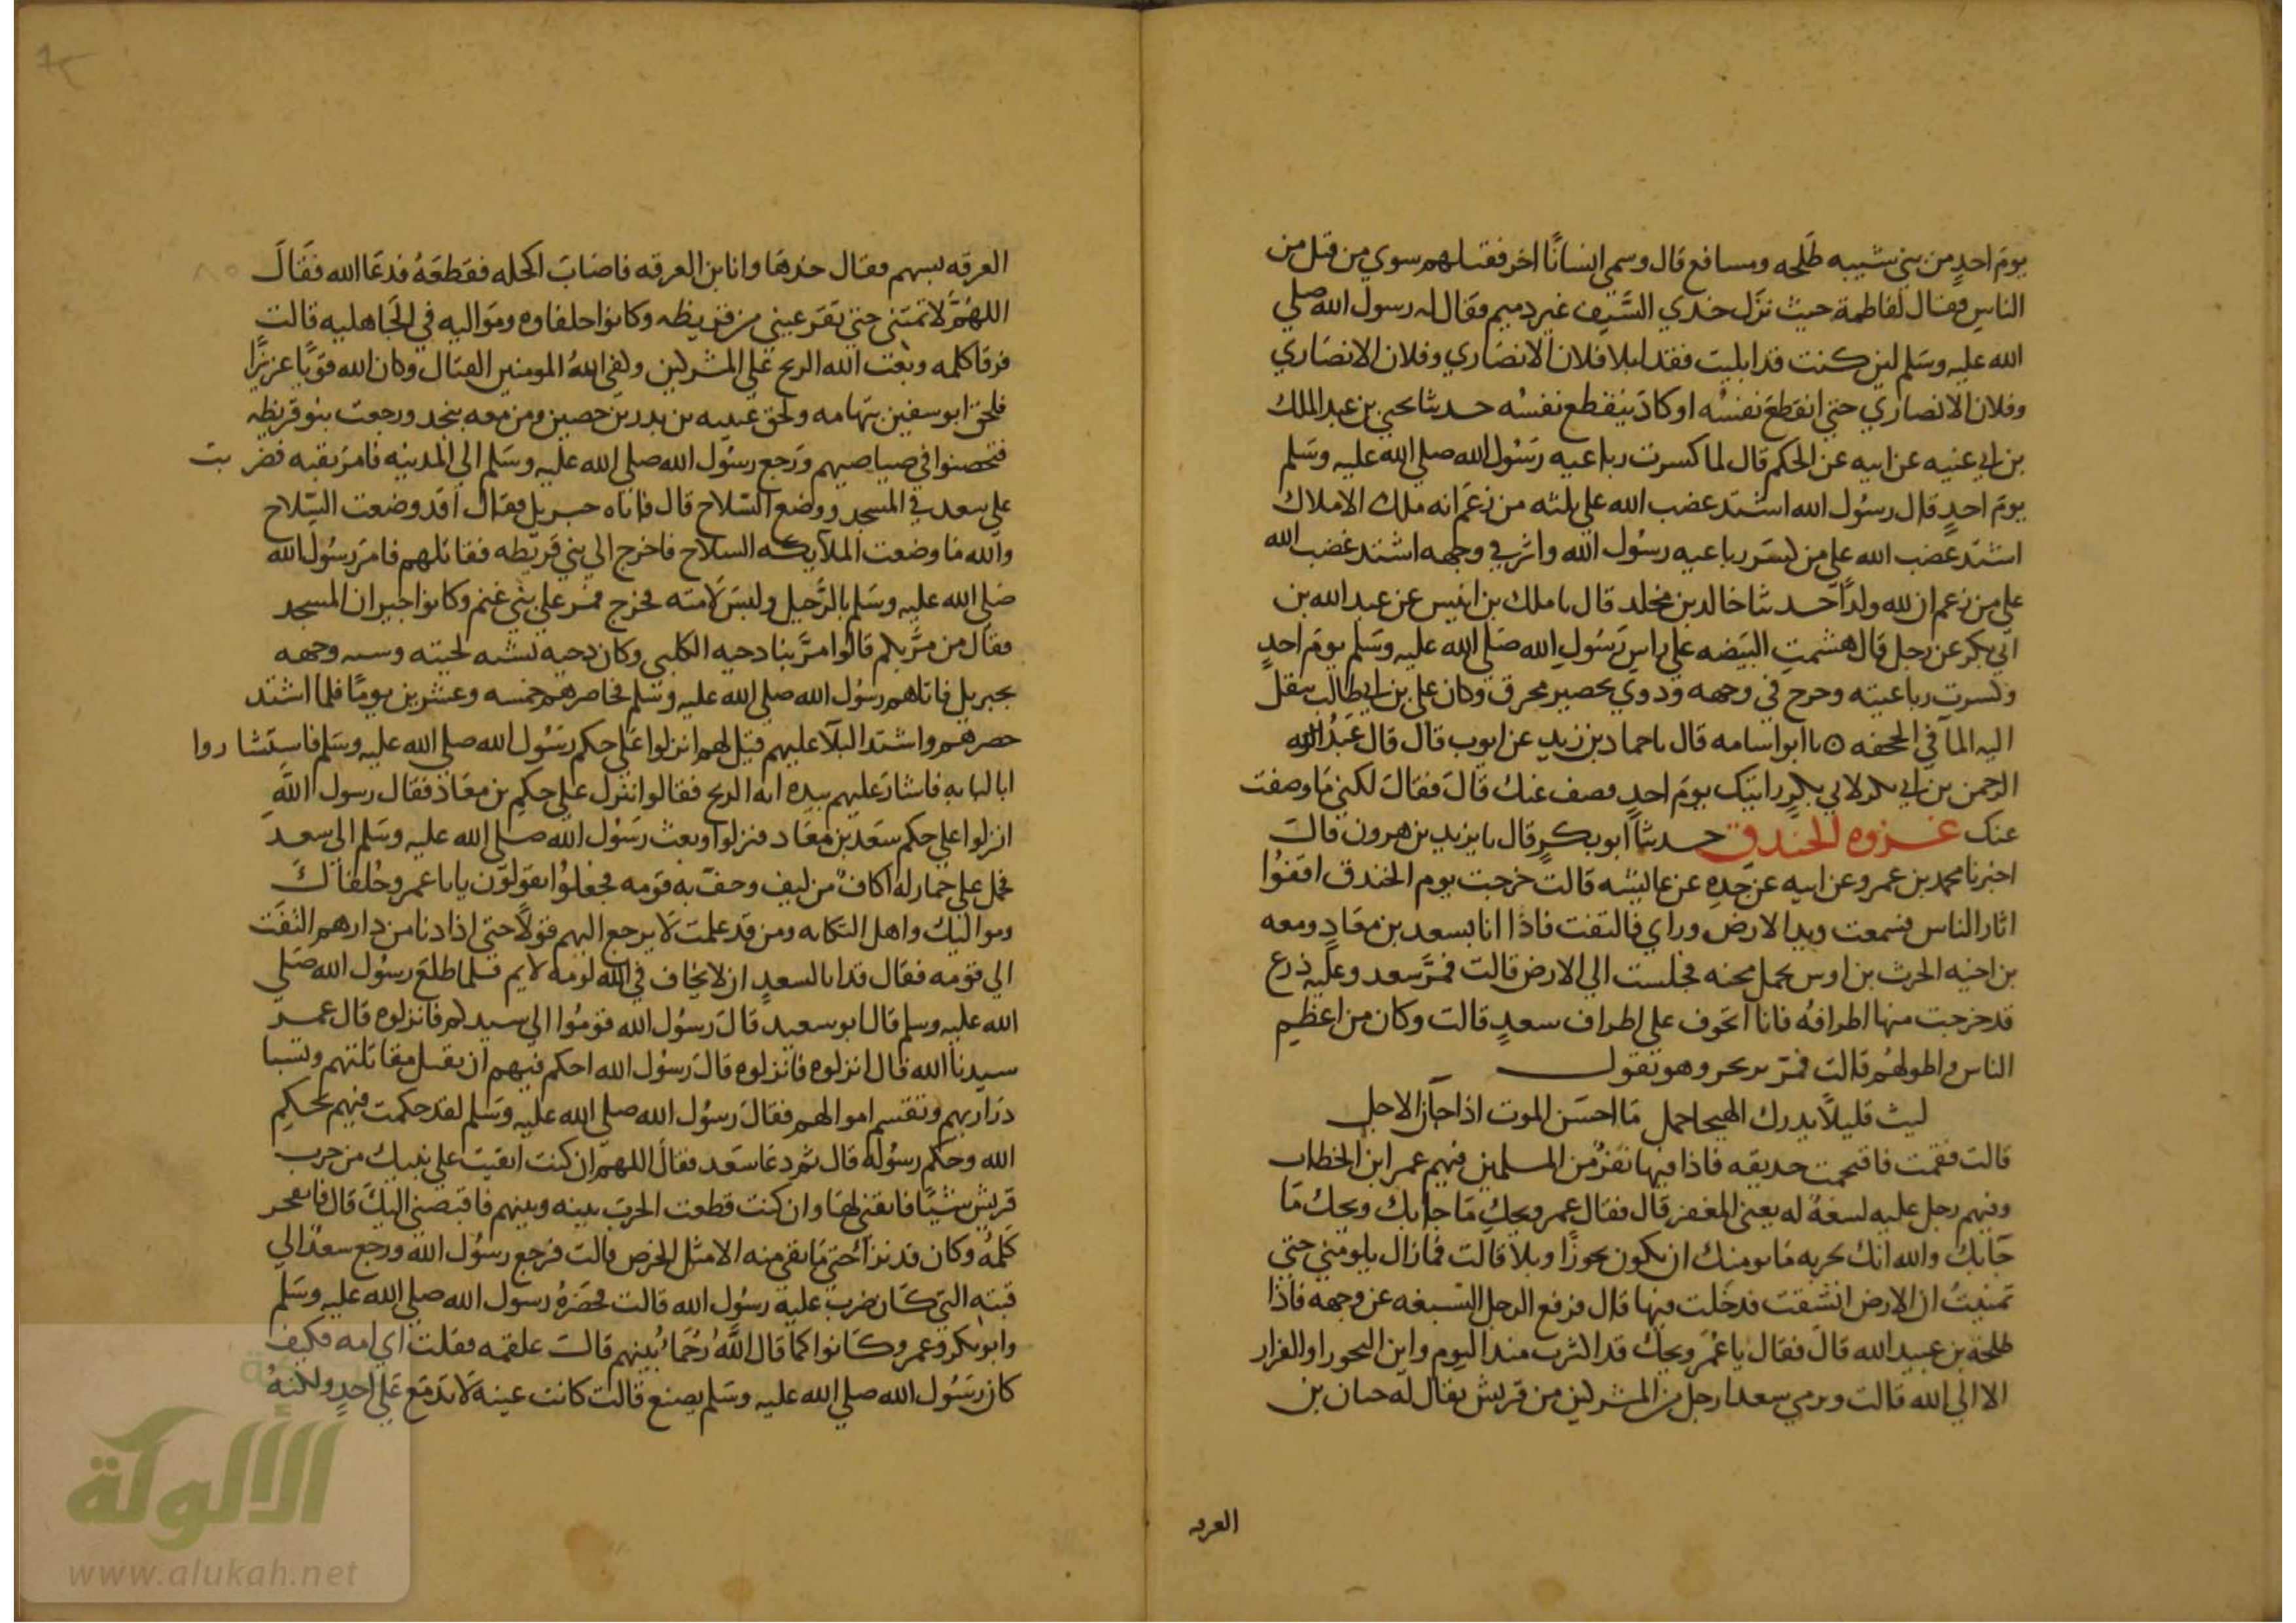 يوم احد من بني شيبه طلحه ومسافع قال وسمي انسانا اخر فقتلهم سوي من قتل من
الناس فقال لفاطمة حيث نزل خذي السيف غير دميم فقال له رسول الله صلي
الله عليه وسلم لين كنت قد ابليت فقد ابلا فلان الانصاري وفلان الانصاري
وفلان الانصاري حتي انقطع نفسه او كاد ينقطع نفسه حدثنا يحيي بن عبد الملك
بن ابي عنيه عن ابيه عن الحكم قال لما كسرت رباعيه رسول الله صلي الله عليه وسلم
يوم احد قال رسول الله اشتد غضب الله علي ثلثه من زعم انه ملك الاملاك
اشتد غضب الله علي من كسر رباعيه رسول الله واثر في وجهه اشتد غضب الله
علي من زعم ان لله ولدا حدثنا خالد بن مخلد قال نا ملك بن انيس عن عبد الله بن
ابي بكر عن رجل قال هشمت البيضه علي راس رسول الله صلي الله عليه وسلم يوم احد
وكسرت رباعيته وجرح في وجهه ودووي بحصير محرق وكان علي بن ابي طالب ينقل
اليه الما في الجحفه نا ابو اسامه قال نا حماد بن زيد عن ايوب قال قال عبد
الرحمن بن ابي بكر لابي بكر رايتك يوم احد فصف عنك قال فقال لكني ما وصفت
عنك غزوه الخندق حدثنا ابو بكر قال نا يزيد بن هرون قال
اخبرنا محمد بن عمرو عن ابيه عن جده عن عايشه قالت خرجت يوم الخندق اقفوا
اثار الناس فسمعت وييد الارض وراي فالتفت فاذا انا بسعد بن معاد ومعه
بن اخيه الحرث بن اوس يحمل مجنه فجلست الي الارض قالت فمر سعد وعليه درع
قد خرجت منها اطرافه فانا اتخوف علي اطراف سعد قالت وكان من اعظم
الناس واطولهم قالت فمر يرتجز وهو يقول
ليث قليلا يدرك الهيجا حمل ما احسن الموت اذا حان الاجل
قالت فقمت فاقتحمت حديقه فاذا فيها نفر من المسلمين فيهم عمر ابن الخطاب
وفيهم رجل عليه تسبغة له يعني المغفر قال فقال عمر ويحك ما جابك ويحك ما
جابك والله انك لجريه ما يومنك ان يكون تحوزا وبلا قالت فما زال يلومني حتي
تمنيت ان الارض انشقت فدخلت فيها قال فرفع الرجل التسبغه عن وجهه فاذا
طلحة بن عبيد الله قال فقال يا عمر ويحك قد اكثرت منذ اليوم واين التحوز او الفرار
الا الي الله قالت ويرمي سعدا رجل من المشركين من قريش يقال له حبان بن
العرقه
العرقه بسهم فقال خذها وانا بن العرقه فاصاب اكحله فقطعه فدعا الله فقال
اللهم لا تمتني حتي تقر عيني من قريظه وكانوا حلفاوه ومواليه في الجاهليه قالت
فرقا كلمه وبعث الله الريح علي المشركين وكفي الله المومنين القتال وكان الله قويا عزيزا
فلحق ابو سفين بتهامه ولحق عيينه بن بدر بن حصين ومن معه بنجد ورجعت بنو قريظه
فتحصنوا في صياصيهم ورجع رسول الله صلي الله عليه وسلم الي المدينه فامر بقبه فضربت
علي سعد في المسجد ووضع السلاح قال فاتاه جبريل فقال اقد وضعت السلاح
والله ما وضعت الملايكه السلاح فاخرج الي بني قريظه فقاتلهم فامر رسول الله
صلي الله عليه وسلم بالرحيل ولبس لامته فخرج فمر علي بني غنم وكانوا جيران المسجد
فقال من مر بكم قالوا مر بنا دحيه الكلبي وكان دحيه تشبه لحيته وسنه وجهه
بجبريل فاتاهم رسول الله صلي الله عليه وسلم فحاصرهم خمسه وعشرين يوما فلما اشتد
حصرهم واشتد البلا عليهم قيل لهم انزلوا علي حكم رسول الله صلي الله عليه وسلم فاستشاروا
ابا لبابه فاشار عليهم بيده انه الذبح فقالوا ننزل علي حكم بن معاذ فقال رسول الله
انزلوا علي حكم سعد بن معاد فنزلوا وبعث رسول الله صلي الله عليه وسلم الي سعد
فحمل علي حمار له اكاف من ليف وحف به قومه فجعلوا يقولون يابا عمرو حلفاك
ومواليك واهل النكايه ومن قد علمت لا يرجع اليهم قولا حتي اذا دنا من دارهم التفت
الي قومه فقال قد انا لسعد ان لا يخاف في الله لومه لايم فلما طلع رسول الله صلي
الله عليه وسلم قال ابو سعيد قال رسول الله قوموا الي سيدكم فانزلوه قال عمر
سيدنا الله قال انزلوه فانزلوه قال رسول الله احكم فيهم ان يقتل مقاتلتهم وتسبا
ذراريهم وتقتسم اموالهم فقال رسول الله صلي الله عليه وسلم لقد حكمت فيهم بحكم
الله وحكم رسوله قال ثم دعا سعد فقال اللهم ان كنت ابقيت علي نبيك من حرب
قريش شيئا فابقني لها وان كنت قطعت الحرب بينه وبينهم فاقبضني اليك قال فانفجر
كلمه وكان قد برا حتي ما بقي منه الا مثل الخرص قالت فرجع رسول الله ورجع سعد الي
قبته التي كان ضرب عليه رسول الله قالت فحضره رسول الله صلي الله عليه وسلم
وابو بكر وعمر وكانوا كما قال الله رحما بينهم قالت علقمه فقلت اي امه فكيف
كان رسول الله صلي الله عليه وسلم يصنع قالت كانت عينه لا تدمع علي احد ولكنه
الألوكة
www.alukah.net